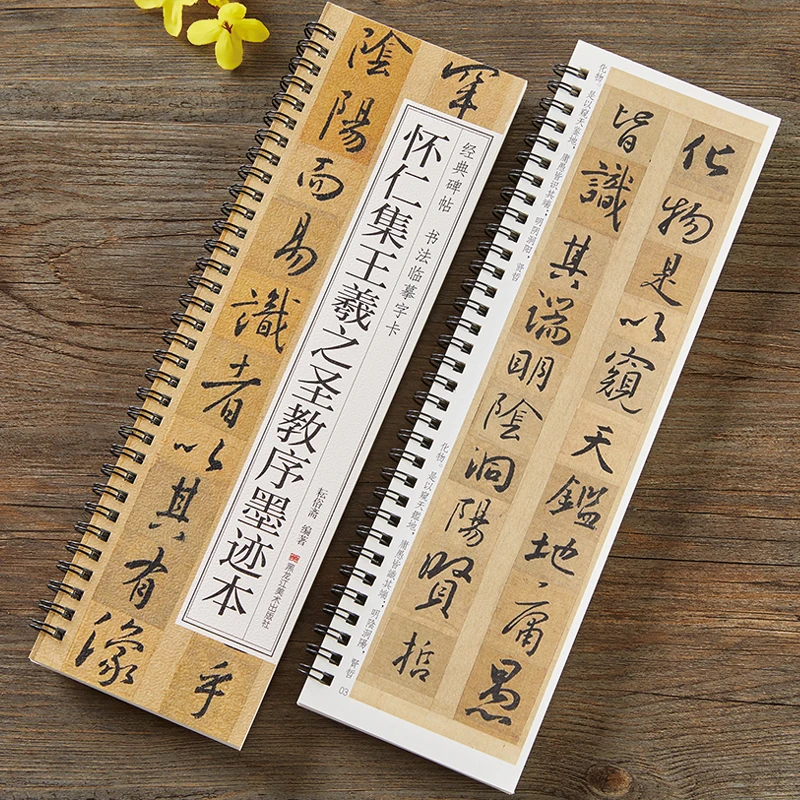 乎
陰陽而易識者以其有像
经典碑帖 书法临摹字卡
怀仁集王羲之圣教序墨迹本
耘俗斋 编著
黑龙江美术出版社
化物是以窺天鑑地庸愚
皆識其端明陰洞陽賢哲
化物。是以窥天鉴地，庸愚皆识其端；明阴洞阳，贤哲
化物。是以窺天鑑地，庸愚皆識其端；明陰洞陽，賢哲
03